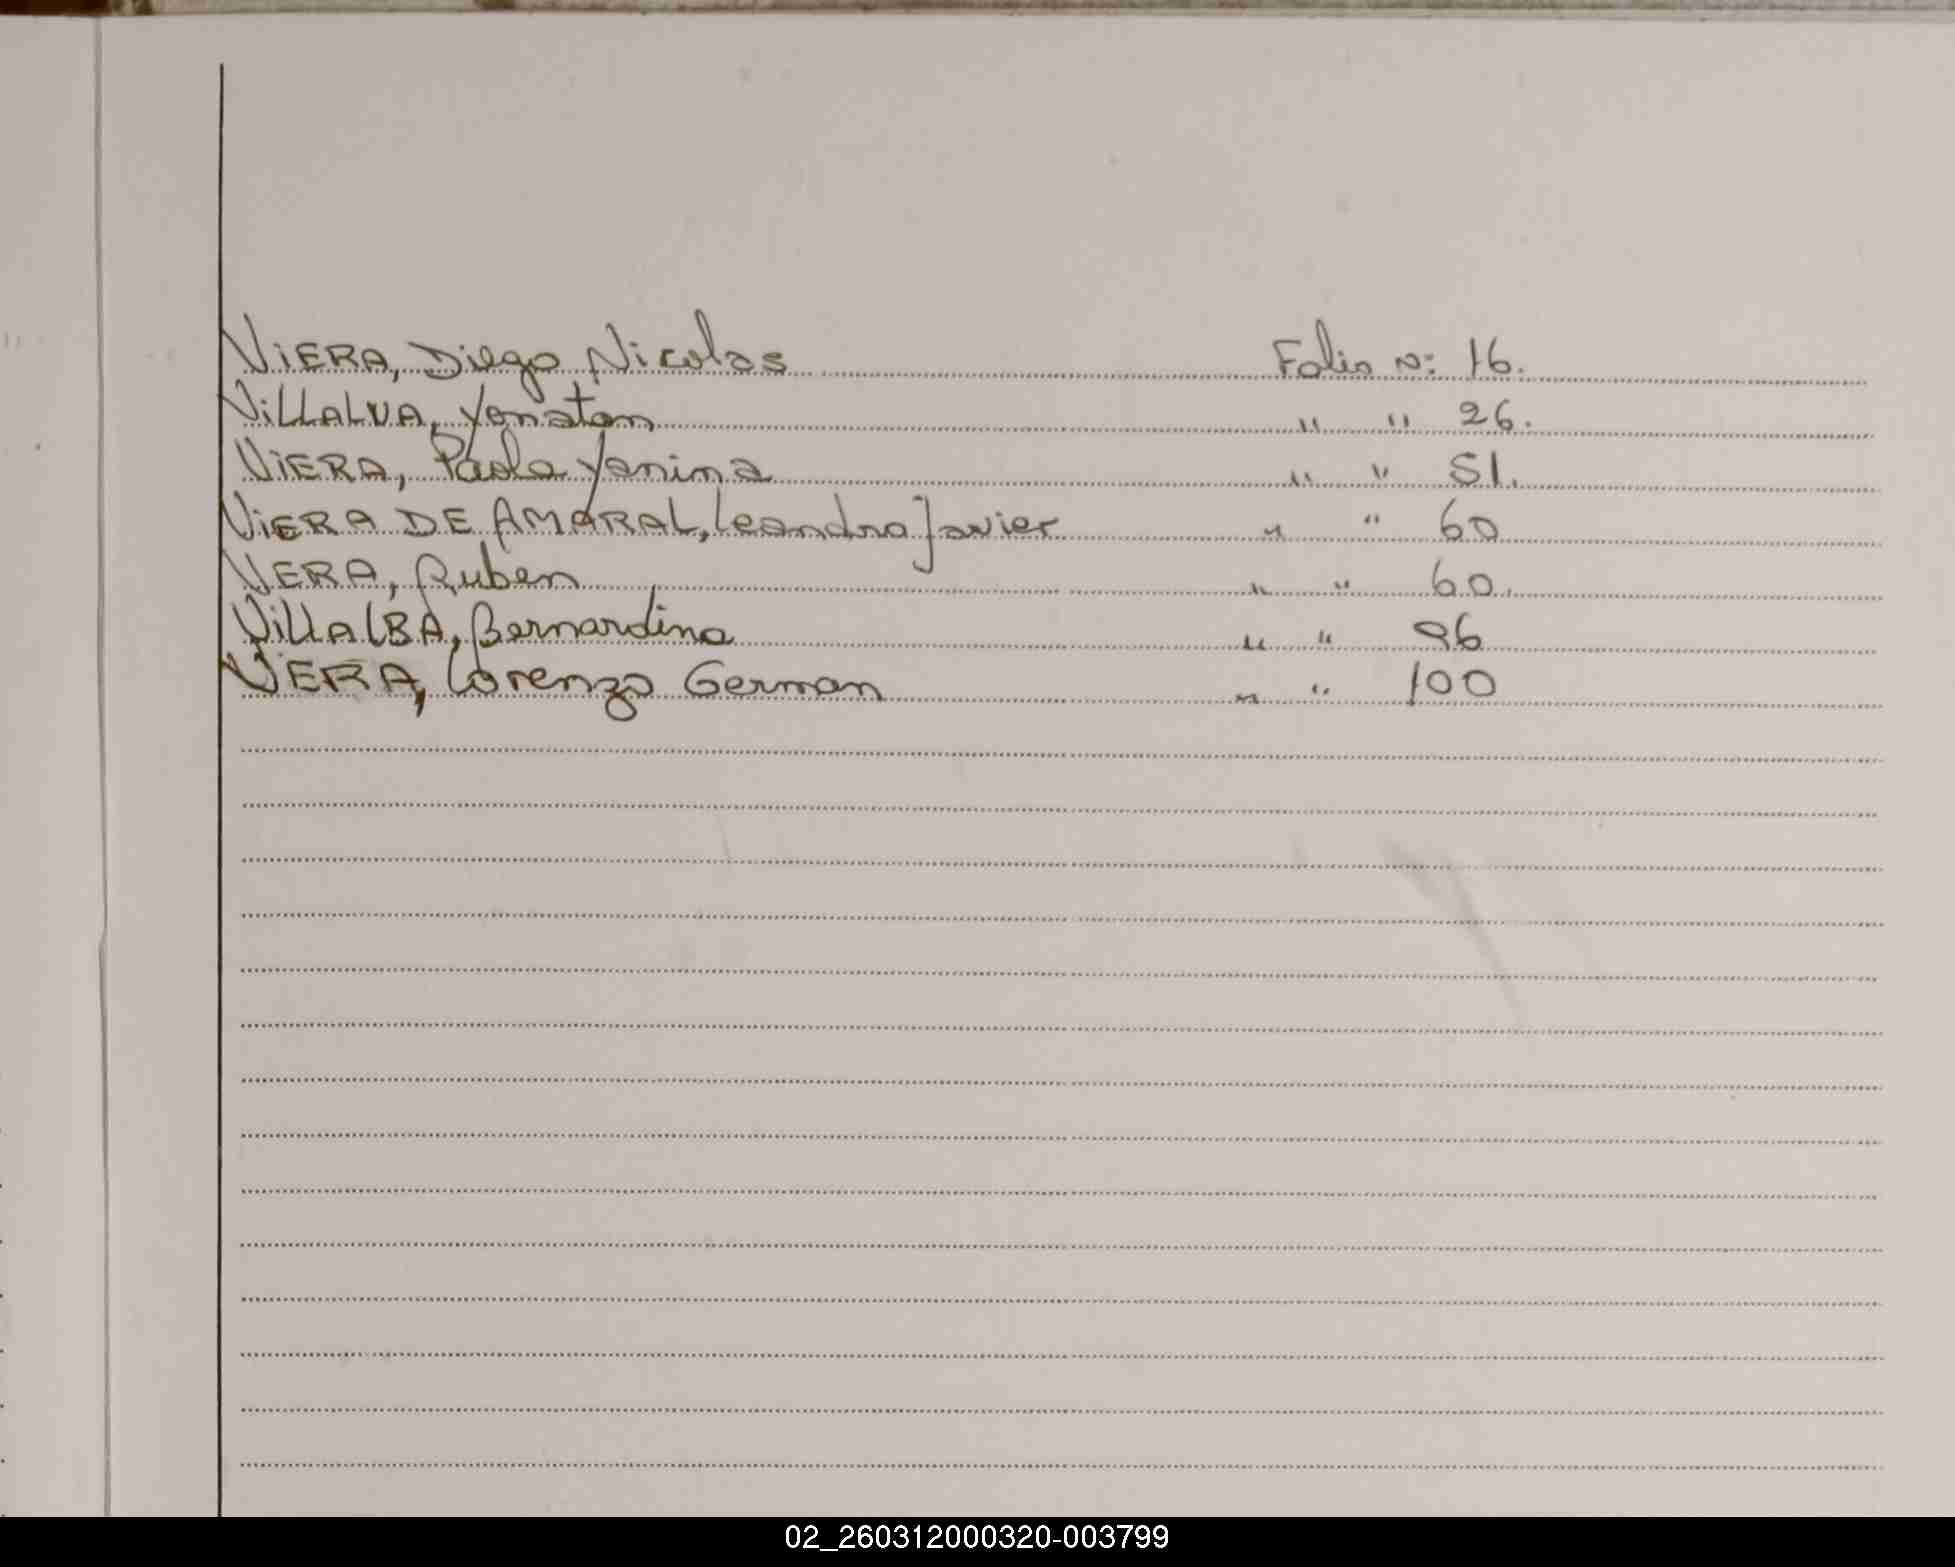 ViERA, Diego Nicolas Folio N: 16.
ViLLALVA, Yonatan " " 26.
ViERA, Paola Yanina " " 51.
ViERA DE AMARAL, Leandro Javier " " 60
VERA, Ruben " " 60.
VillAlBA, Bernardino " " 96
VERA, Lorenzo German " " 100
02_260312000320-003799